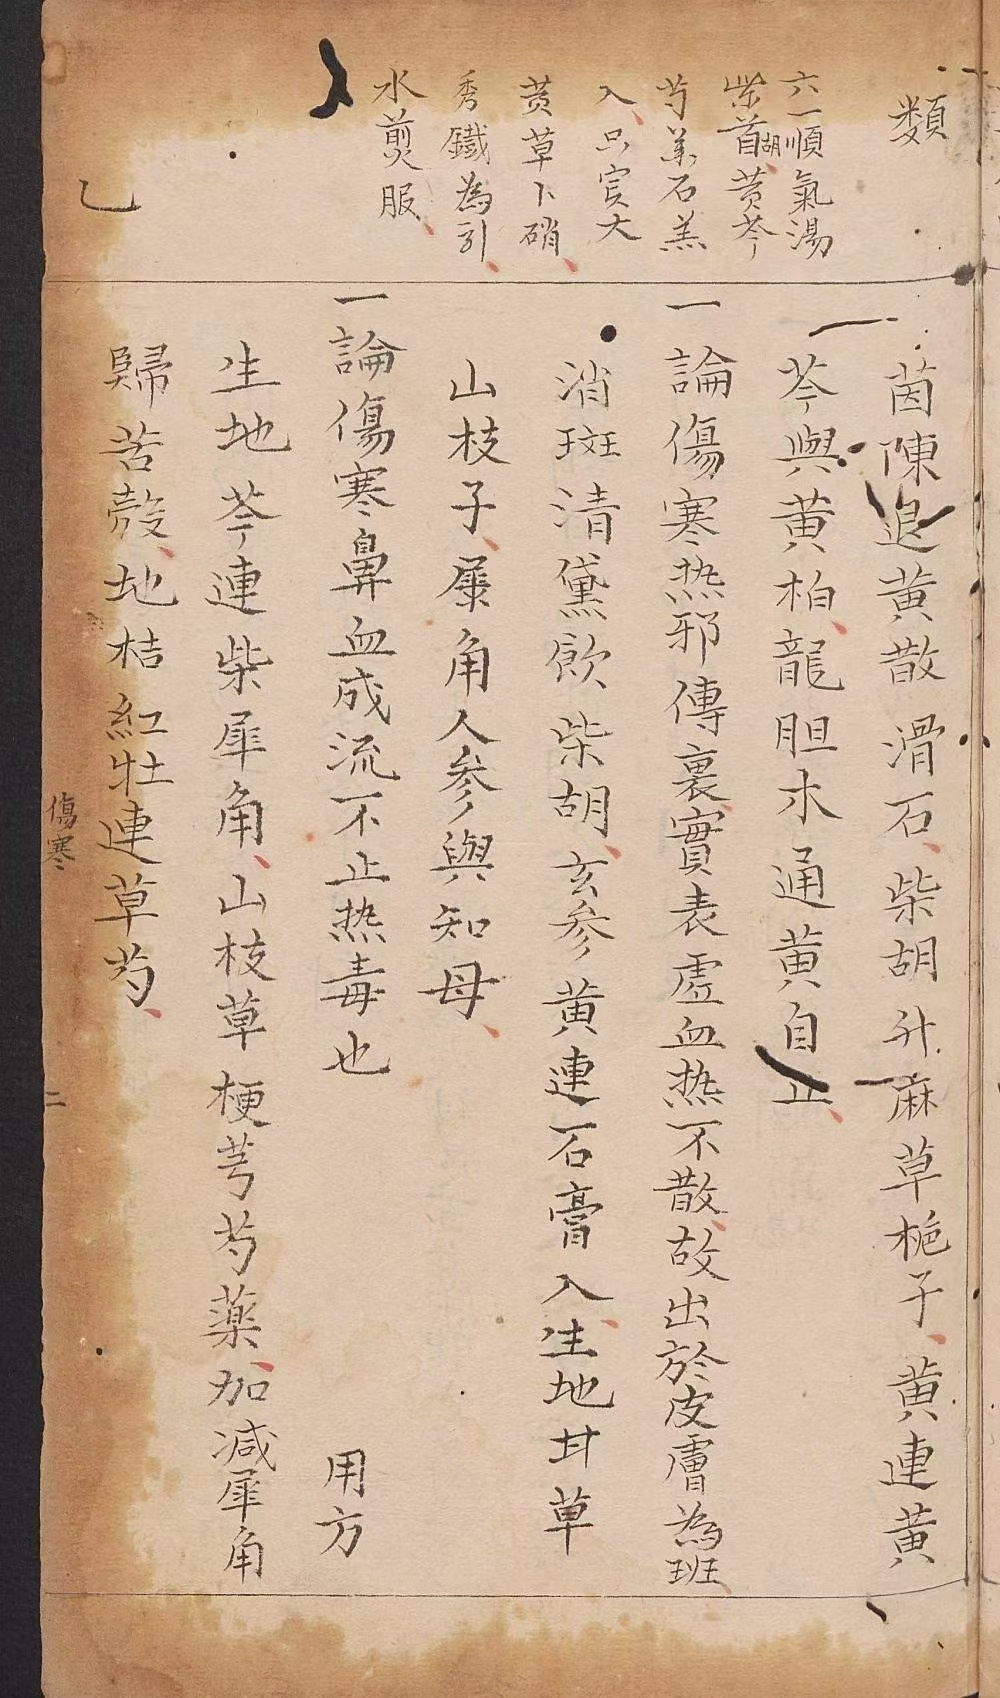 類
六一順氣湯
柴首胡黄芩
芍羙石羔
入只实大
黄草卜硝
秀鐵為引
水煎服
乙
茵陳退黄散滑石柴胡升麻草梔子黄連黄
芩與黄柏龍胆木通黄自止
一論傷寒热邪傳裏實表虚血热不散故出於皮膚為班
消斑清黛飲柴胡玄參黄連石膏入生地甘草
山枝子犀角人參與知母
一論傷寒鼻血成流不止热毒也 用方
生地芩連柴犀角山枝草梗芎芍薬加減犀角
歸苦殻地桔紅牡連草芍
傷寒
二